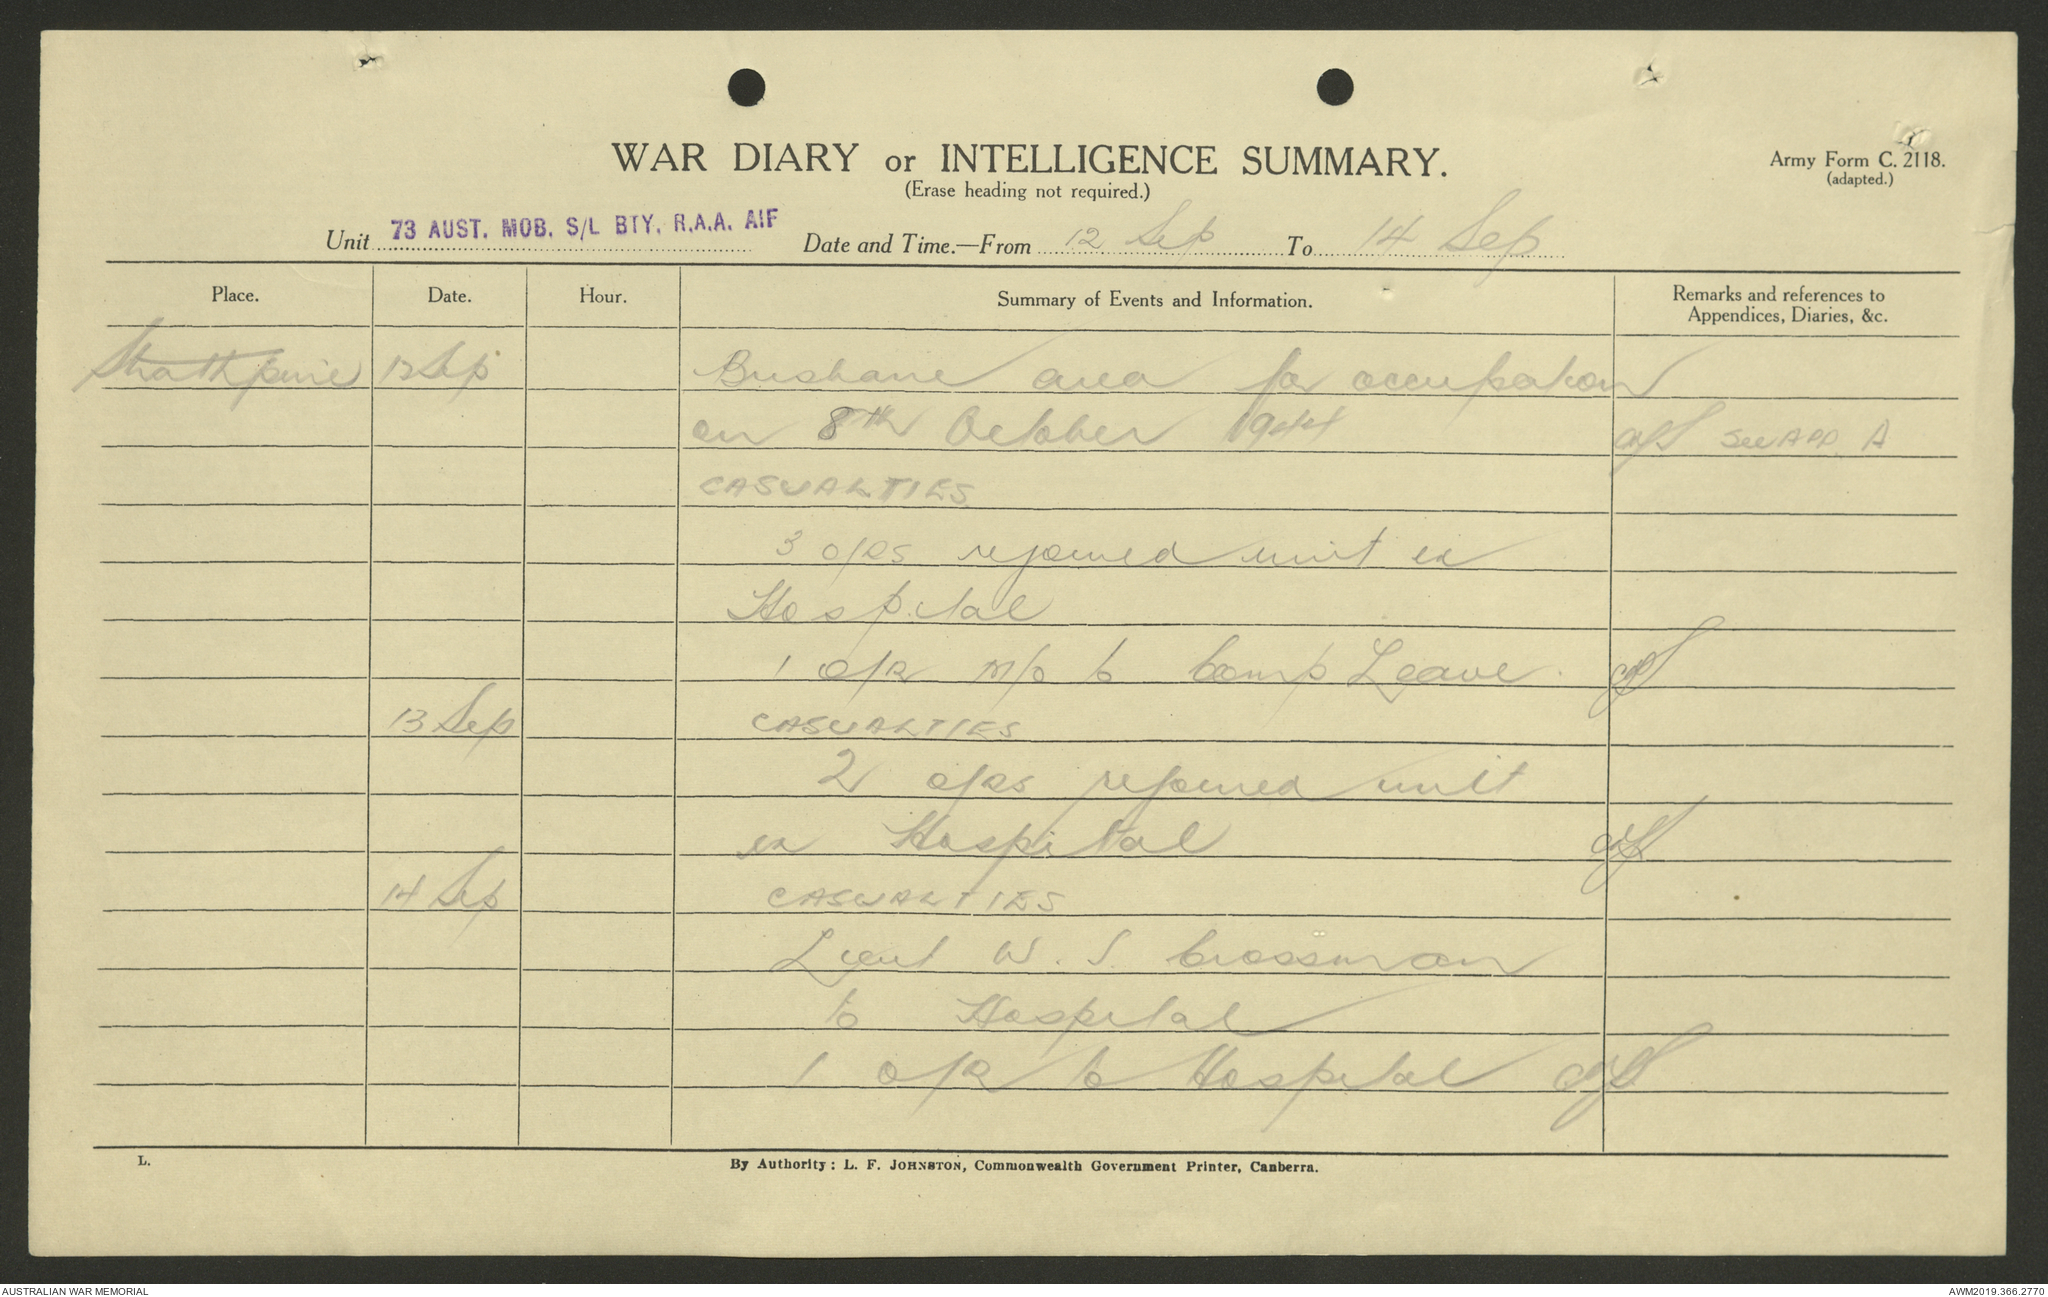 WAR DIARY or INTELLIGENCE SUMMARY.
(Erase heading not required.)
Army Form C. 2118.
(adapted.)
Unit 73 AUST. MOB. S/L BTY. R.A.A. AIF Date and Time.—From 12 Sep To 14 Sep
Place. Date. Hour. Summary of Events and Information. Remarks and references to Appendices, Diaries, &c.
Strathpine 12 Sep Brisbane area for occupation
on 8th October 1944 See APP. A
CASUALTIES
3 o/Rs rejoined unit ex
Hospital
1 O/R M/O to Comp Leave.
13 Sep CASUALTIES
2 o/Rs rejoined unit
ex Hospital
14 Sep CASUALTIES
Lieut W. S. Crossman
to Hospital
1 o/R to Hospital
L.
By Authority: L. F. JOHNSTON, Commonwealth Government Printer, Canberra.
AUSTRALIAN WAR MEMORIAL
AWM2019.366.2770